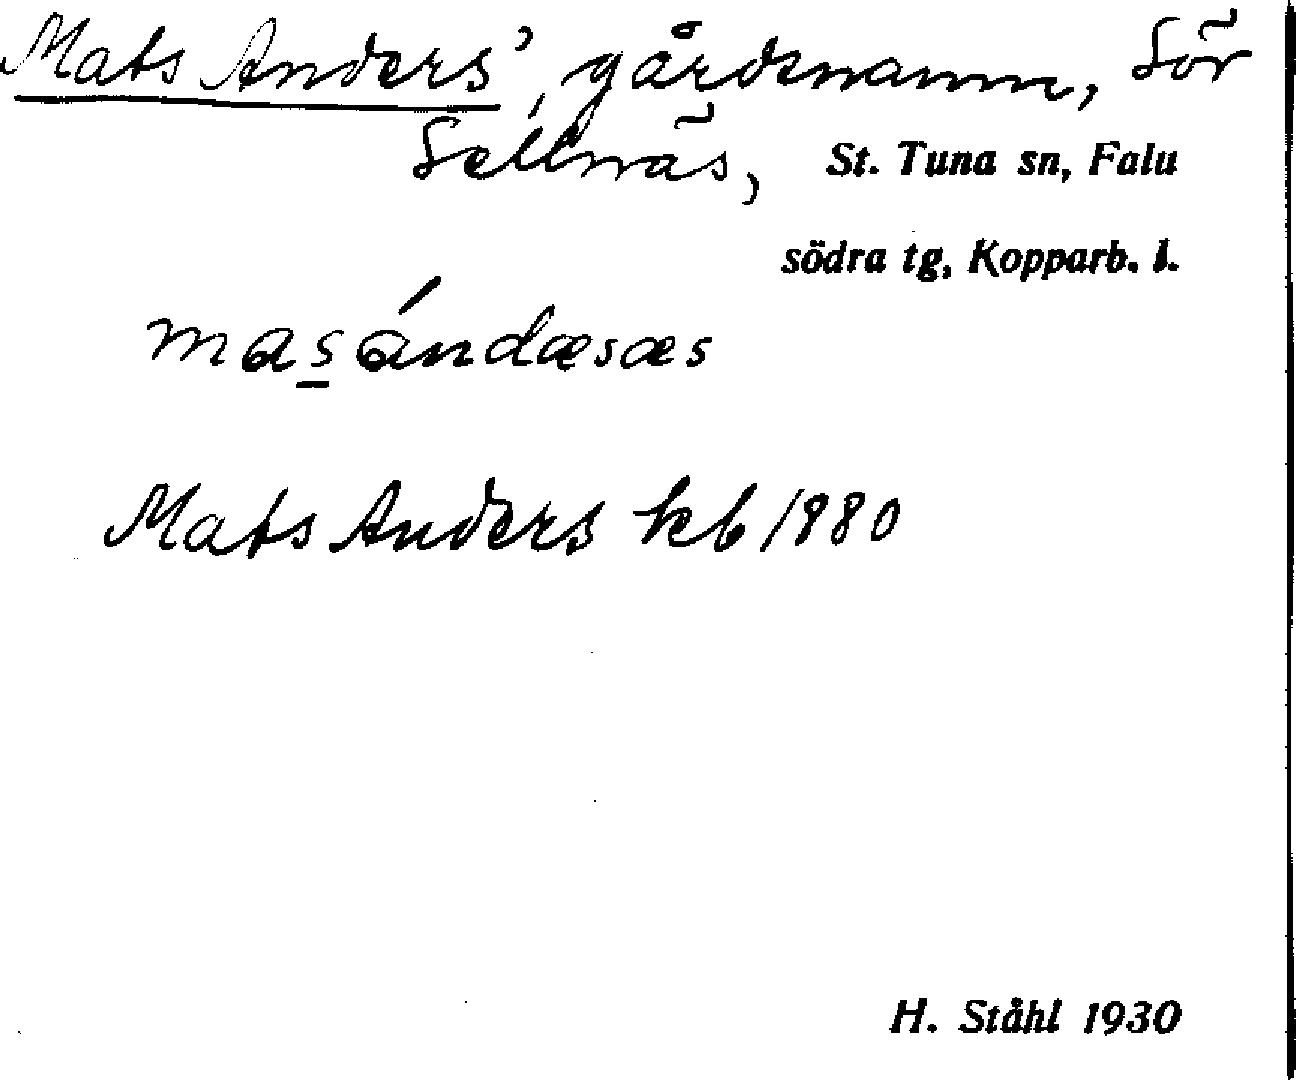 Mats Anders', gårdsnamn, Sör
Sellnäs, St. Tuna sn, Falu
södra tg, Kopparb. l.
masándæsæs
Mats Anders kb 1880
H. Ståhl 1930